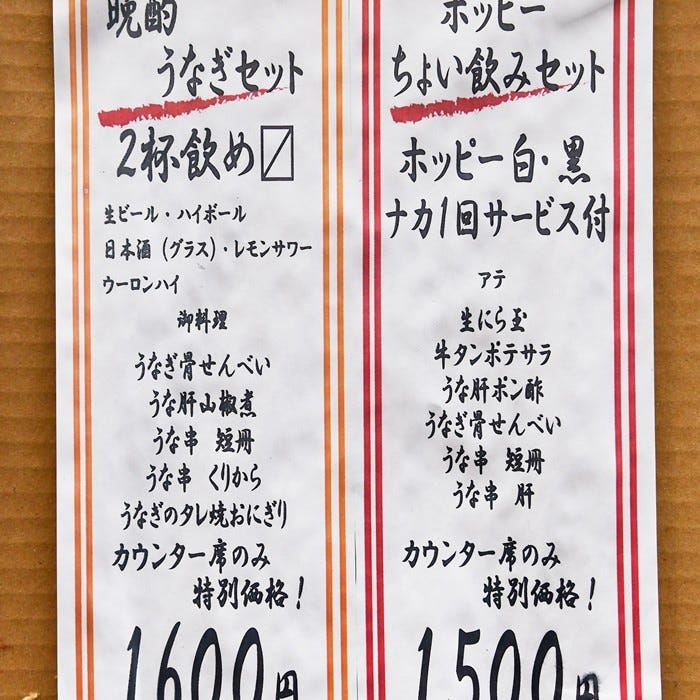 晩酌
うなぎセット
2杯飲め〼
生ビール・ハイボール
日本酒（グラス）・レモンサワー
ウーロンハイ
御料理
うなぎ骨せんべい
うな肝山椒煮
うな串 短冊
うな串 くりから
うなぎのタレ焼おにぎり
カウンター席のみ
特別価格！
1600円
ホッピー
ちょい飲みセット
ホッピー白・黒
ナカ1回サービス付
アテ
生にら玉
牛タンポテサラ
うな肝ポン酢
うなぎ骨せんべい
うな串 短冊
うな串 肝
カウンター席のみ
特別価格！
1500円